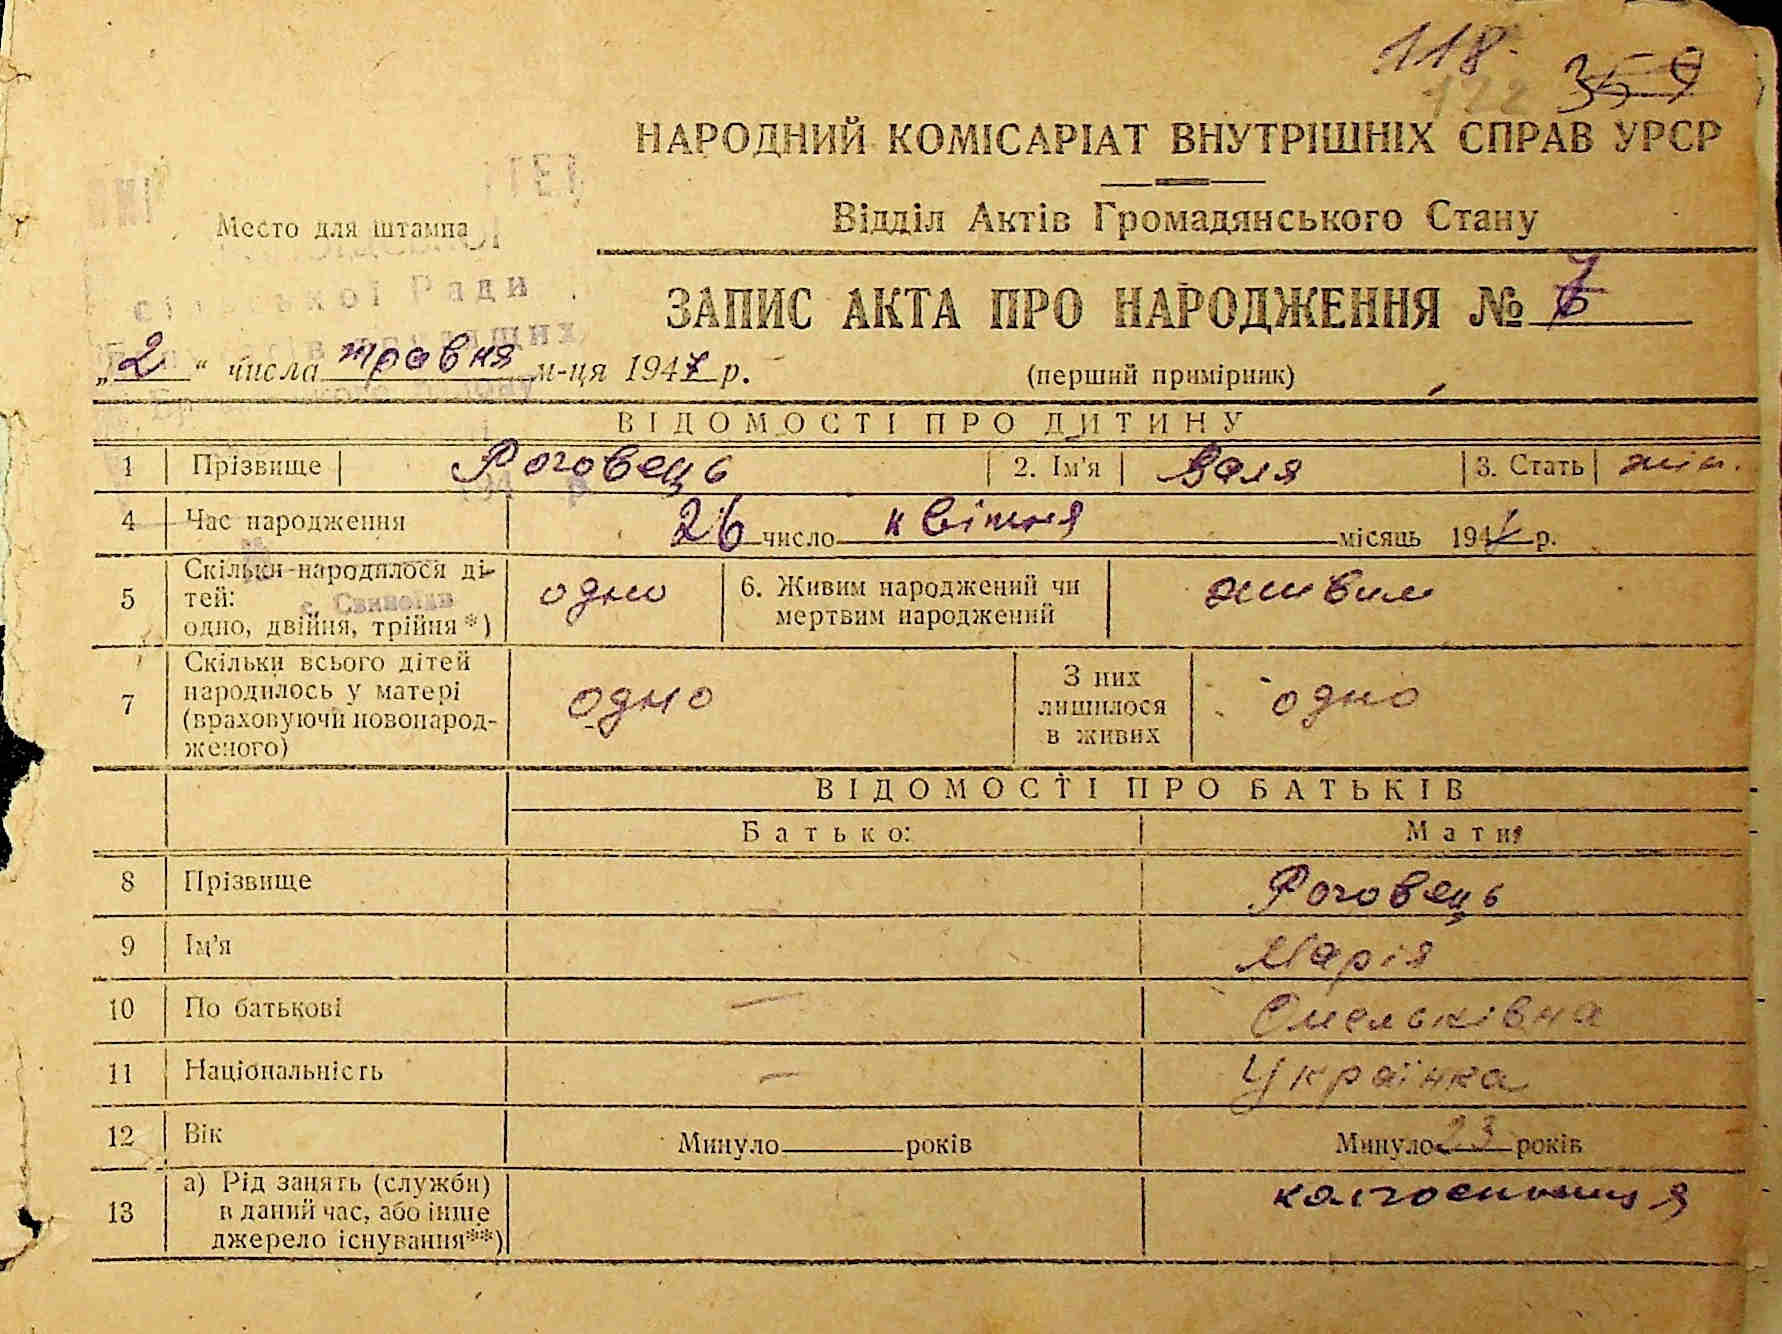 118
122 359
НАРОДНИЙ КОМІСАРІАТ ВНУТРІШНІХ СПРАВ УРСР
Відділ Актів Громадянського Стану
Место для штампа
сільської Ради
ЗАПИС АКТА ПРО НАРОДЖЕННЯ № 7
„2“ числа травня м-ця 1947 р.
(перший примірник)
ВІДОМОСТІ ПРО ДИТИНУ
1 Прізвище Роговець 2. Ім'я Валя 3. Стать жін.
4 Час народження 26 число квітня місяць 1947 р.
5 Скільки народилося ді-
тей:
одно, двійня, трійня*) одно 6. Живим народжений чи
мертвим народжений живим
7 Скільки всього дітей
народилось у матері
(враховуючи новонарод-
женого) одно З них
лишилося
в живих одно
ВІДОМОСТІ ПРО БАТЬКІВ
Батько: Мати:
8 Прізвище Роговець
9 Ім'я Марія
10 По батькові — Омельківна
11 Національність — Українка
12 Вік Минуло років Минуло 23 років
13 а) Рід занять (служби)
в даний час, або інше
джерело існування**) колгоспниця